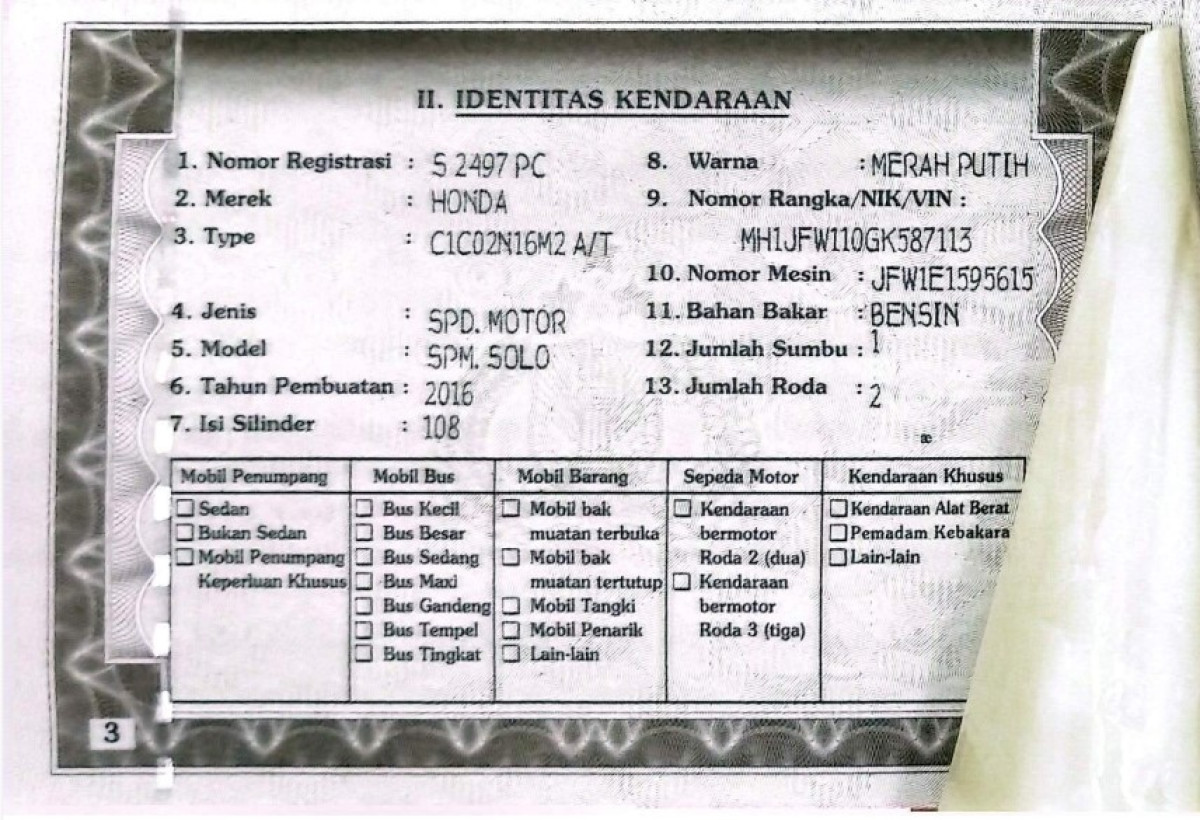 II. IDENTITAS KENDARAAN
1. Nomor Registrasi : S 2497 PC
2. Merek : HONDA
3. Type : C1C02N16M2 A/T
4. Jenis : SPD. MOTOR
5. Model : SPM. SOLO
6. Tahun Pembuatan : 2016
7. Isi Silinder : 108
8. Warna : MERAH PUTIH
9. Nomor Rangka/NIK/VIN :
MH1JFW110GK587113
10. Nomor Mesin : JFW1E1595615
11. Bahan Bakar : BENSIN
12. Jumlah Sumbu : 1
13. Jumlah Roda : 2
Mobil Penumpang
Sedan
Bukan Sedan
Mobil Penumpang
Keperluan Khusus
Mobil Bus
Bus Kecil
Bus Besar
Bus Sedang
Bus Maxi
Bus Gandeng
Bus Tempel
Bus Tingkat
Mobil Barang
Mobil bak
muatan terbuka
Mobil bak
muatan tertutup
Mobil Tangki
Mobil Penarik
Lain-lain
Sepeda Motor
Kendaraan
bermotor
Roda 2 (dua)
Kendaraan
bermotor
Roda 3 (tiga)
Kendaraan Khusus
Kendaraan Alat Berat
Pemadam Kebakara
Lain-lain
3